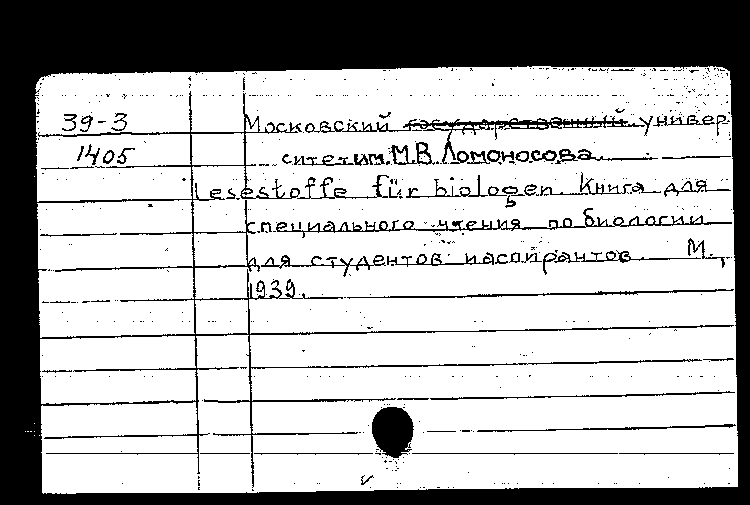 39-3 Московский государственный универ
1405 ситет им. М.В. Ломоносова.
Lesestoffe für biologen. Книга для
специального чтения по биологии
для студентов и аспирантов. М.,
1939.